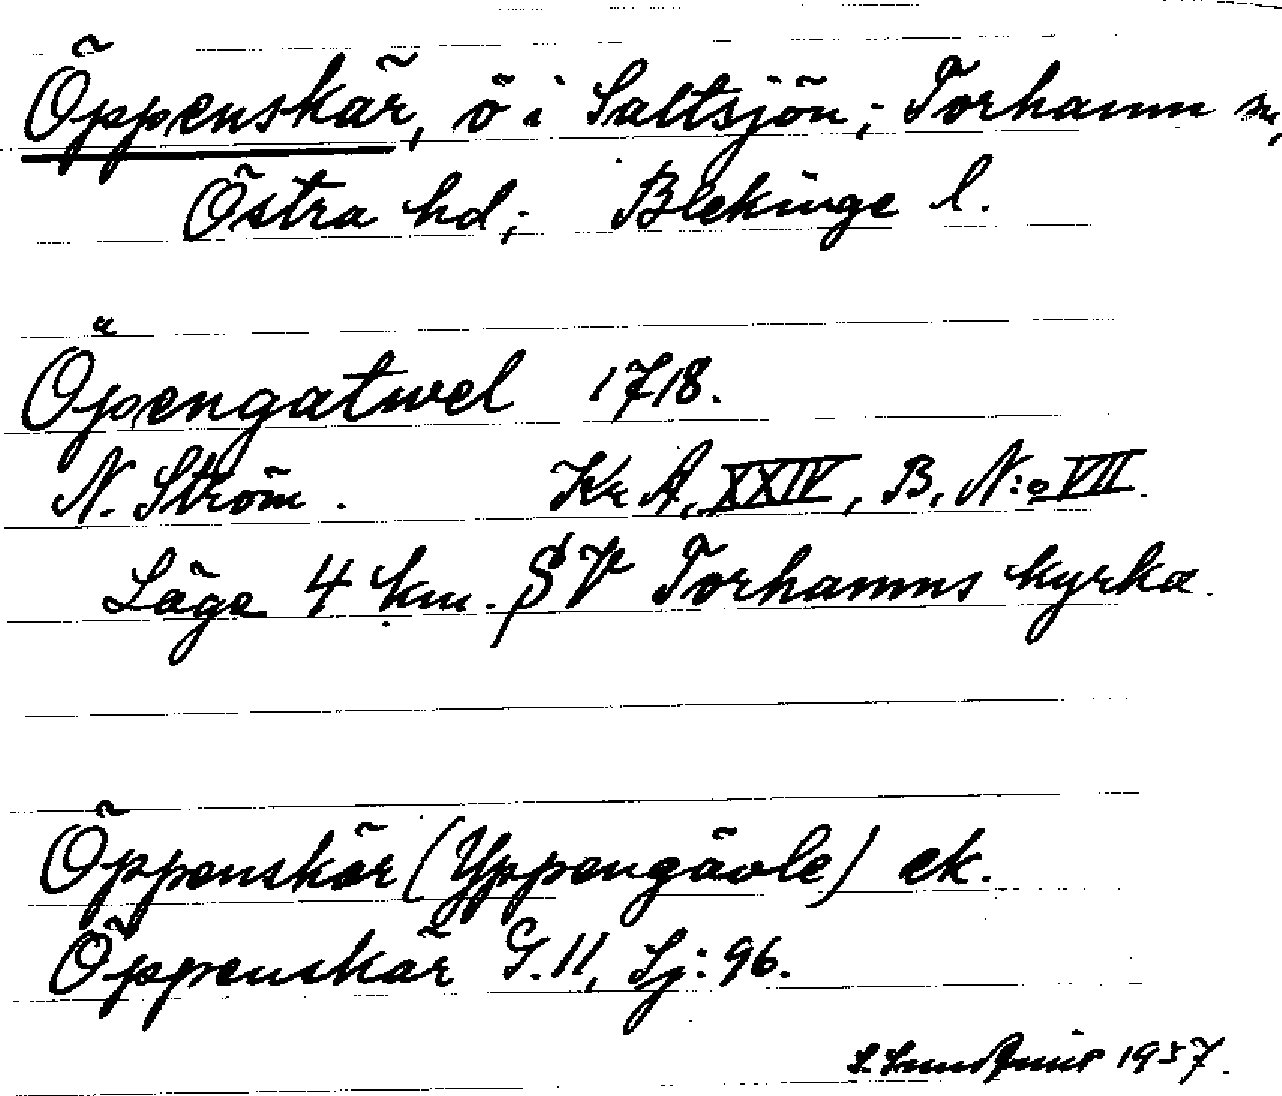 Öppenskär, ö i Saltsjön; Torhamn sn,
Östra hd; Blekinge l.
Öpengatwel 1718.
N. Ström. Kr A, XXIV, B, N:o VII.
Läge 4 km. SV Torhamns kyrka.
Öppenskär (Yppengävle) ek.
Öppenskär G. 11, Sj: 96.
1957.